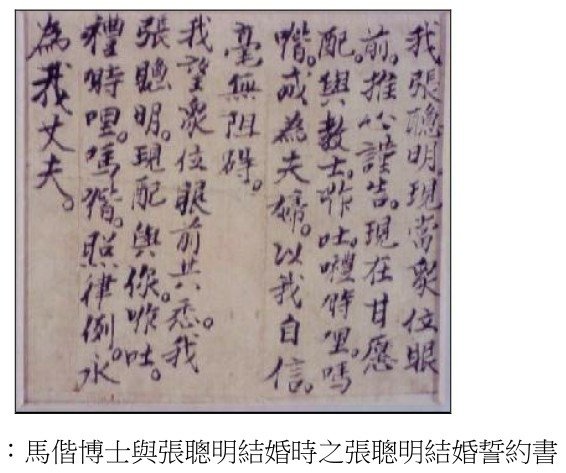 我張聰明現當眾位眼
前。推心謹告。現在甘愿
配。與教士。咋吐。禮時哩。嗎
喈。成為夫婦。以我自信。
毫無阻碍。
我望眾位眼前共悉。我
張聰明。現配與你。咋吐。
禮時哩。嗎喈。照律例。永
為我丈夫。
：馬偕博士與張聰明結婚時之張聰明結婚誓約書